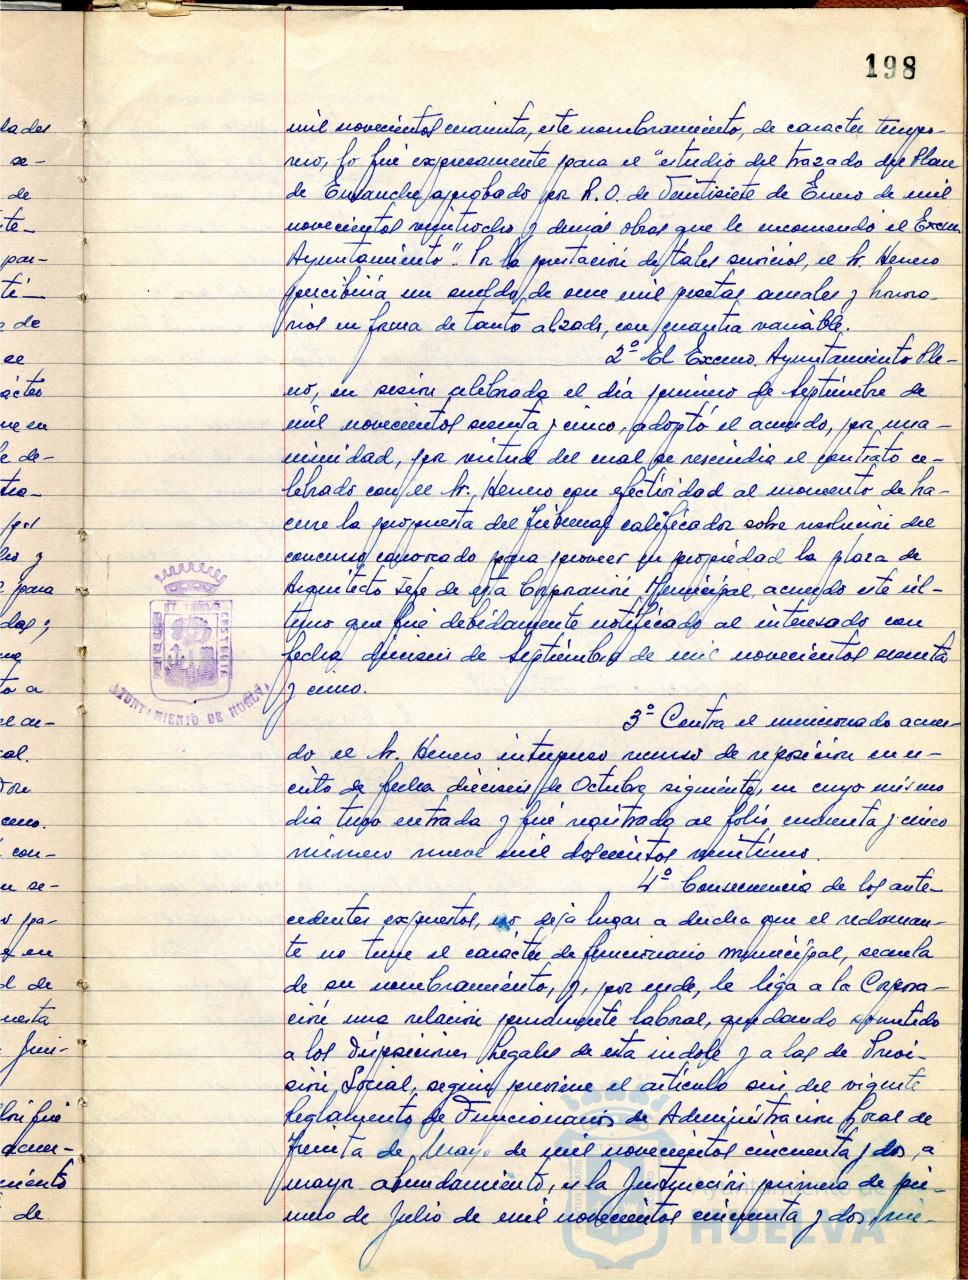 198
mil novecientos cuarenta, este nombramiento, de caracter tempo-
ral, lo fué expresamente para el "estudio del trazado del Plan
de Ensanche aprobado por R.O. de Veintisiete de Enero de mil
novecientos veintiocho y demás obras que le encomende el Excmo
Ayuntamiento". Por la prestación de tales servicios, el Sr. Herrero
percibiria un sueldo de once mil pesetas anuales y honora-
rios en forma de tanto alzado, con cuantia variable.
2º El Excmo. Ayuntamiento Ple-
no, en sesión celebrada el día primero de Septiembre de
mil novecientos sesenta y cinco, adoptó el acuerdo, por una-
nimidad, por virtud del cual se rescindia el contrato ce-
lebrado con el Sr. Herrero con efectividad al momento de ha-
cerse la propuesta del Tribunal calificador sobre resolución del
concurso convocado para proveer en propiedad la plaza de
Arquitecto Jefe de esta Corporación Municipal, acuerdo este úl-
timo que fué debidamente notificado al interesado con
fecha dieciseis de Septiembre de mil novecientos sesenta
y cinco.
3º Contra el mencionado acuer-
do el Sr. Herrero interpuso recurso de reposición en es-
crito de fecha dieciseis de Octubre siguiente, en cuyo mismo
dia tuvo entrada y fué registrado al folio cincuenta y cinco
número nueve mil doscientos veintiuno.
4º Consecuencia de los ante-
cedentes expuestos, no deja lugar a dudas que el reclaman-
te no tiene el carácter de funcionario municipal, secuela
de su nombramiento, y, por ende, le liga a la Corpora-
ción una relación puramente laboral, quedando sometido
a las Disposiciones Legales de esta indole y a las de Previ-
sión Social, según previene el artículo seis del vigente
Reglamento de Funcionarios de Administración Local de
Treinta de Mayo de mil novecientos cincuenta y dos, a
mayor abundamiento, es la Instrucción primera de pri-
mero de Julio de mil novecientos cincuenta y dos,
AYUNTAMIENTO DE HUELVA
Ayuntamiento de
HUELVA